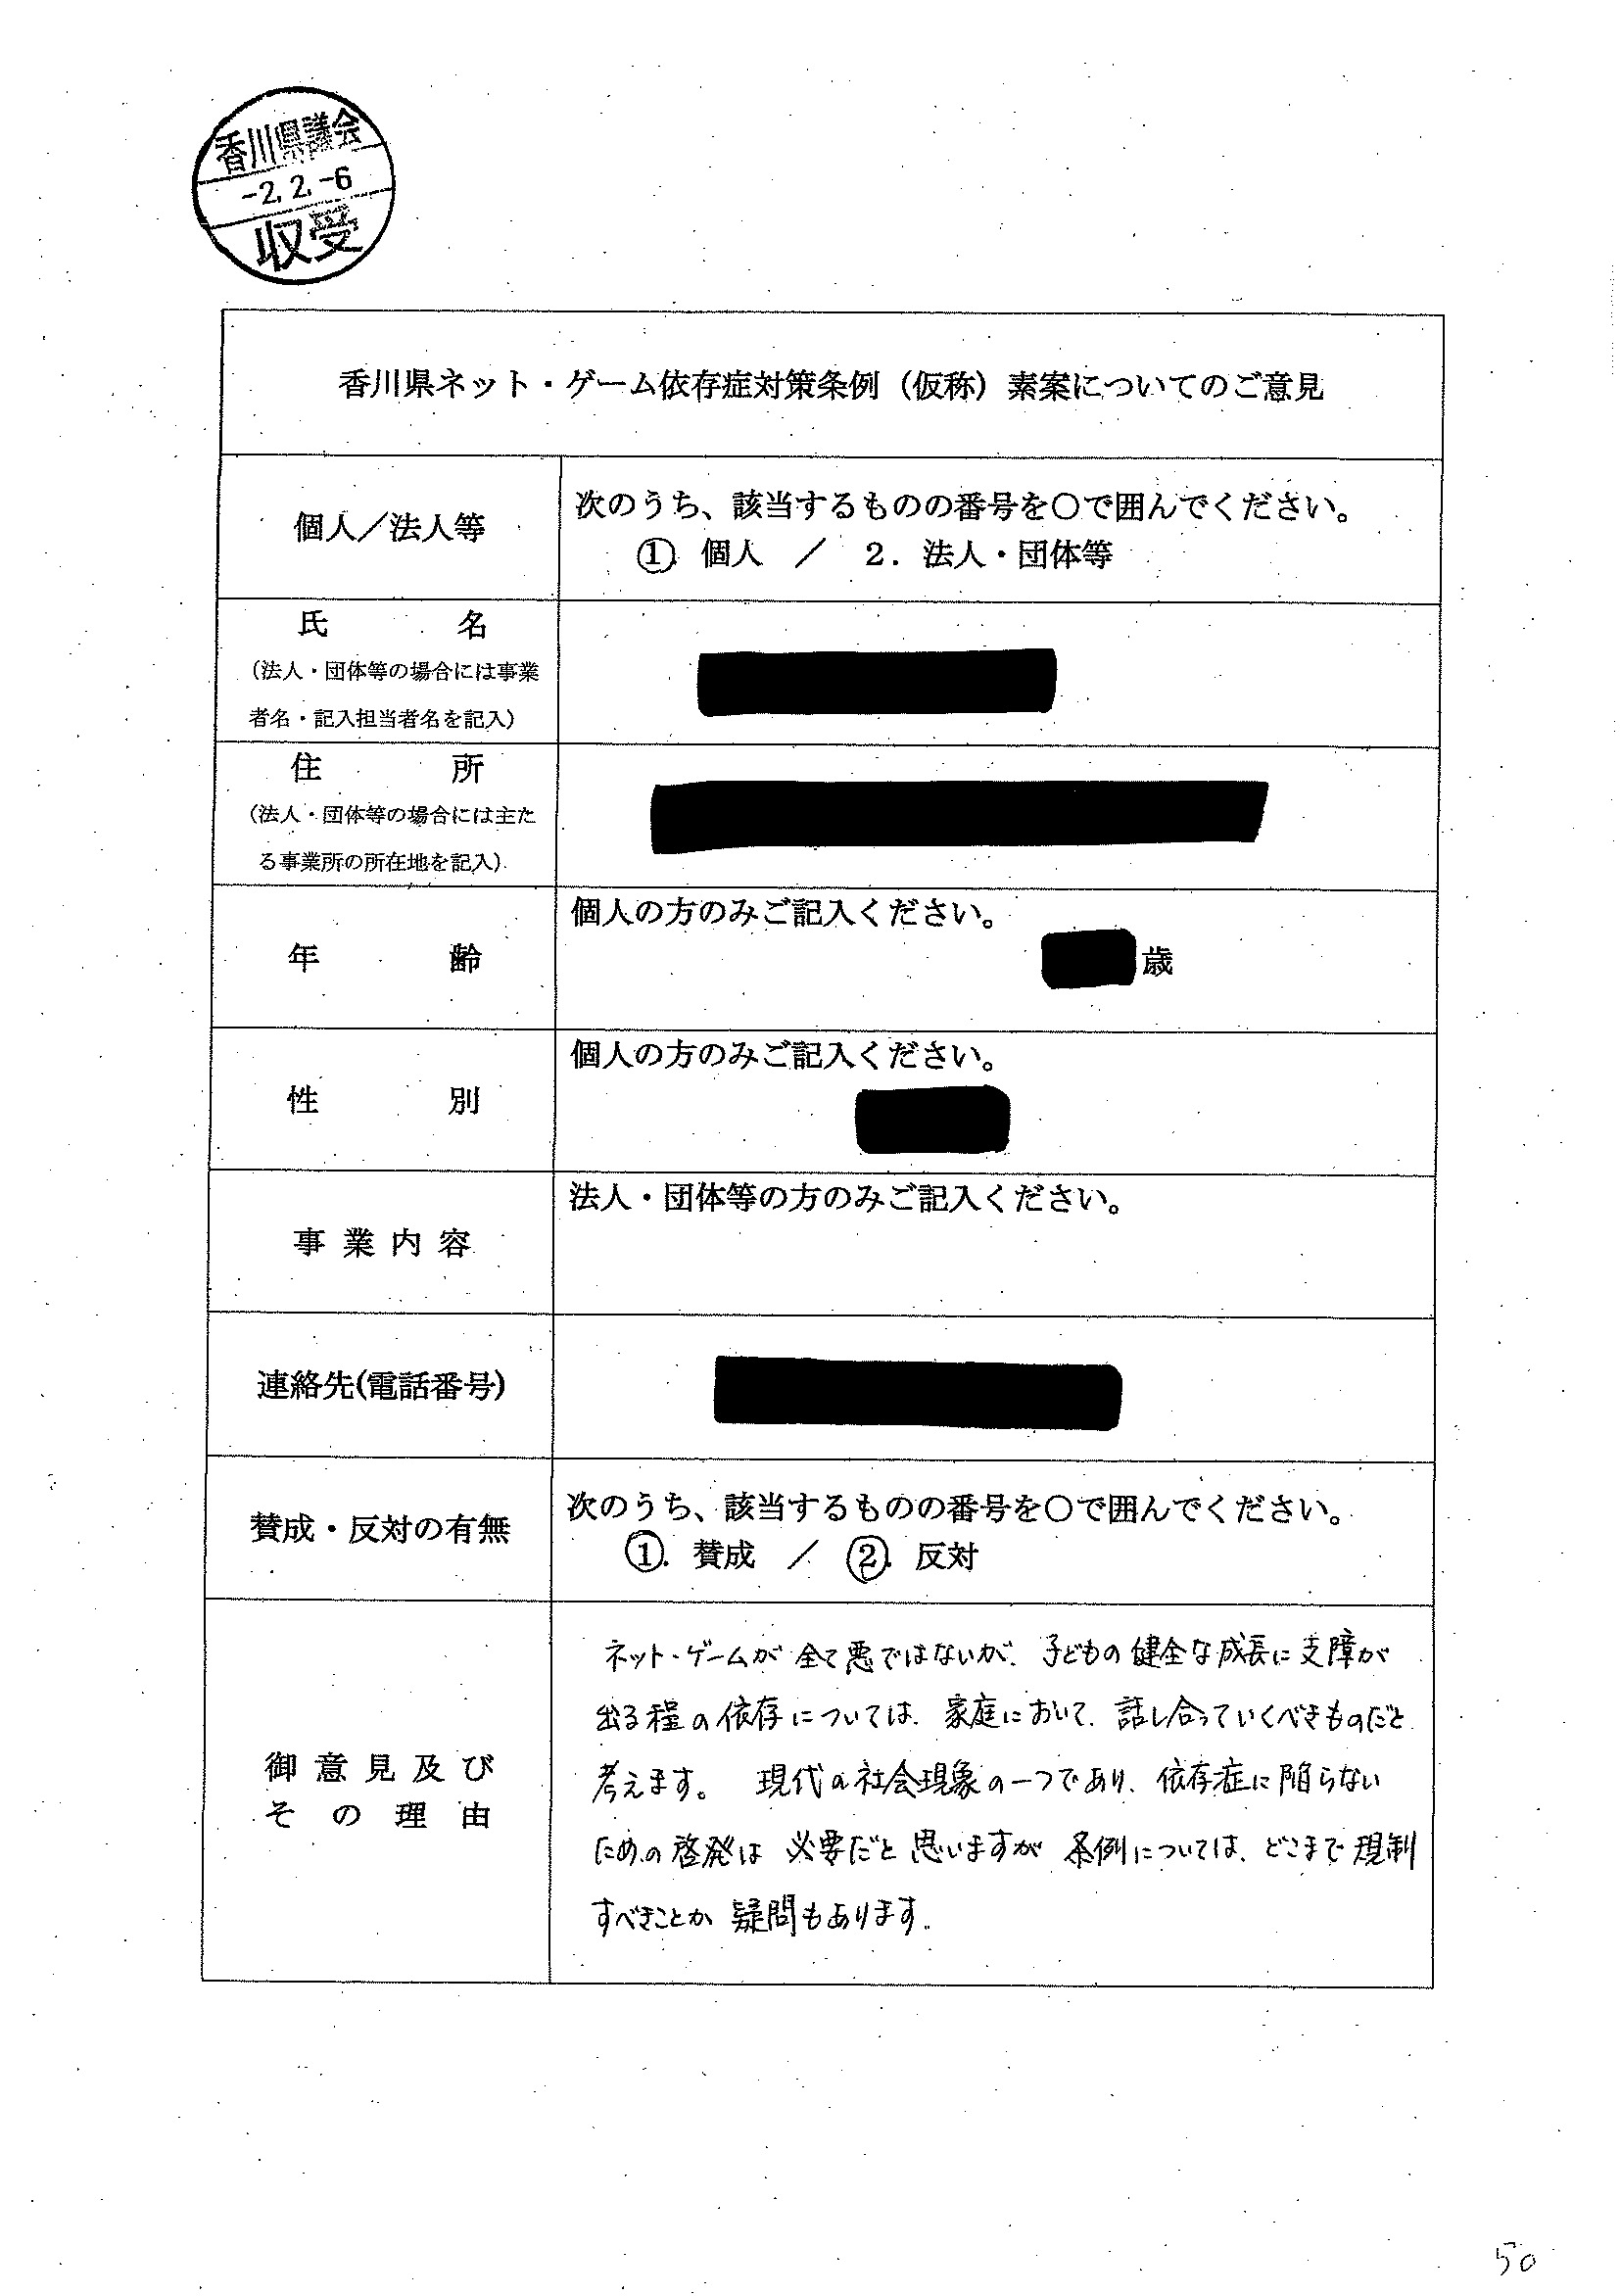 香川県議会
-2.2.-6
収受
香川県ネット・ゲーム依存症対策条例（仮称）素案についてのご意見
個人／法人等
次のうち、該当するものの番号を○で囲んでください。
① 個人 ／ 2. 法人・団体等
氏名
（法人・団体等の場合には事業
者名・記入担当者名を記入）
住所
（法人・団体等の場合には主た
る事業所の所在地を記入）
年齢
個人の方のみご記入ください。
歳
性別
個人の方のみご記入ください。
事業内容
法人・団体等の方のみご記入ください。
連絡先(電話番号)
賛成・反対の有無
次のうち、該当するものの番号を○で囲んでください。
①. 賛成 ／ ②. 反対
御意見及び
その理由
ネット・ゲームが全て悪ではないが、子どもの健全な成長に支障が
出る程の依存については、家庭において、話し合っていくべきものだと
考えます。 現代の社会現象の一つであり、依存症に陥らない
ための啓発は必要だと思いますが 条例については、どこまで規制
すべきことか疑問もあります。
50